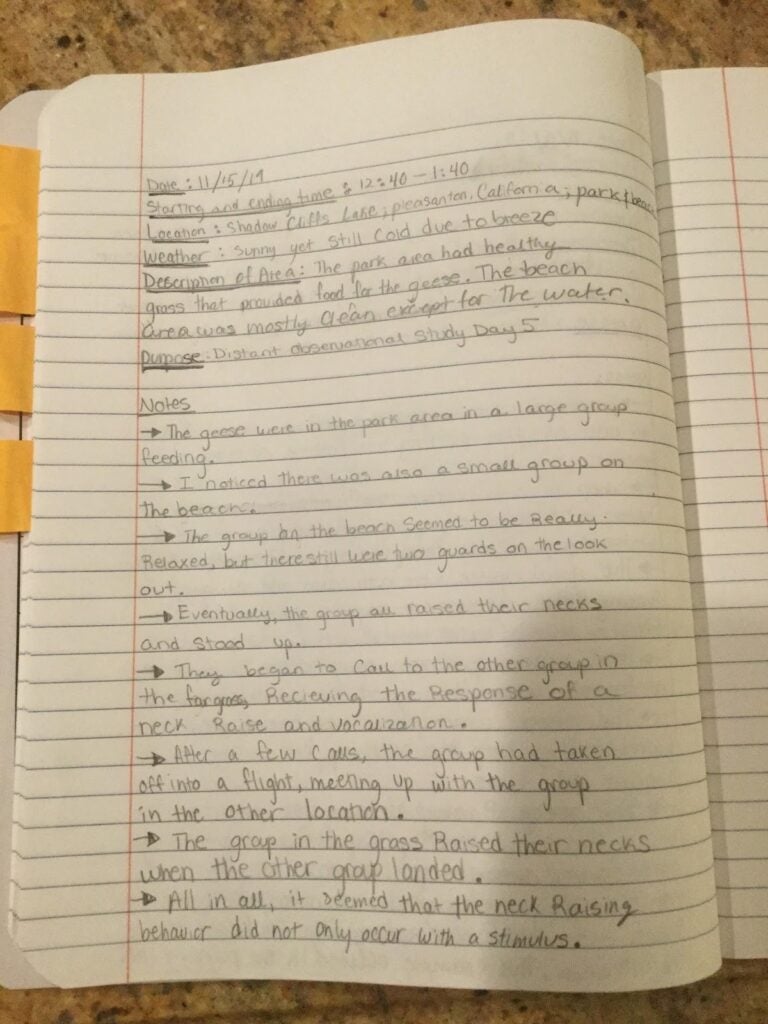 Date : 11/15/19
Starting and ending time : 12:40 - 1:40
Location : Shadow Cliffs Lake, pleasanton, California, park & beach
Weather : Sunny yet still cold due to breeze
Description of Area : The park area had healthy
grass that provided food for the geese. The beach
area was mostly clean except for The water.
Purpose : Distant observational study Day 5
Notes
→ The geese were in the park area in a large group
feeding.
→ I noticed there was also a small group on
the beach.
→ The group on the beach seemed to be Really
Relaxed, but there still were two guards on the look
out.
→ Eventually, the group all raised their necks
and stood up.
→ They began to call to the other group in
the far grass, Recieving the Response of a
neck Raise and vocalization.
→ After a few calls, the group had taken
off into a flight, meeting up with the group
in the other location.
→ The group in the grass Raised their necks
when the other group landed.
→ All in all, it seemed that the neck Raising
behavior did not only occur with a stimulus.